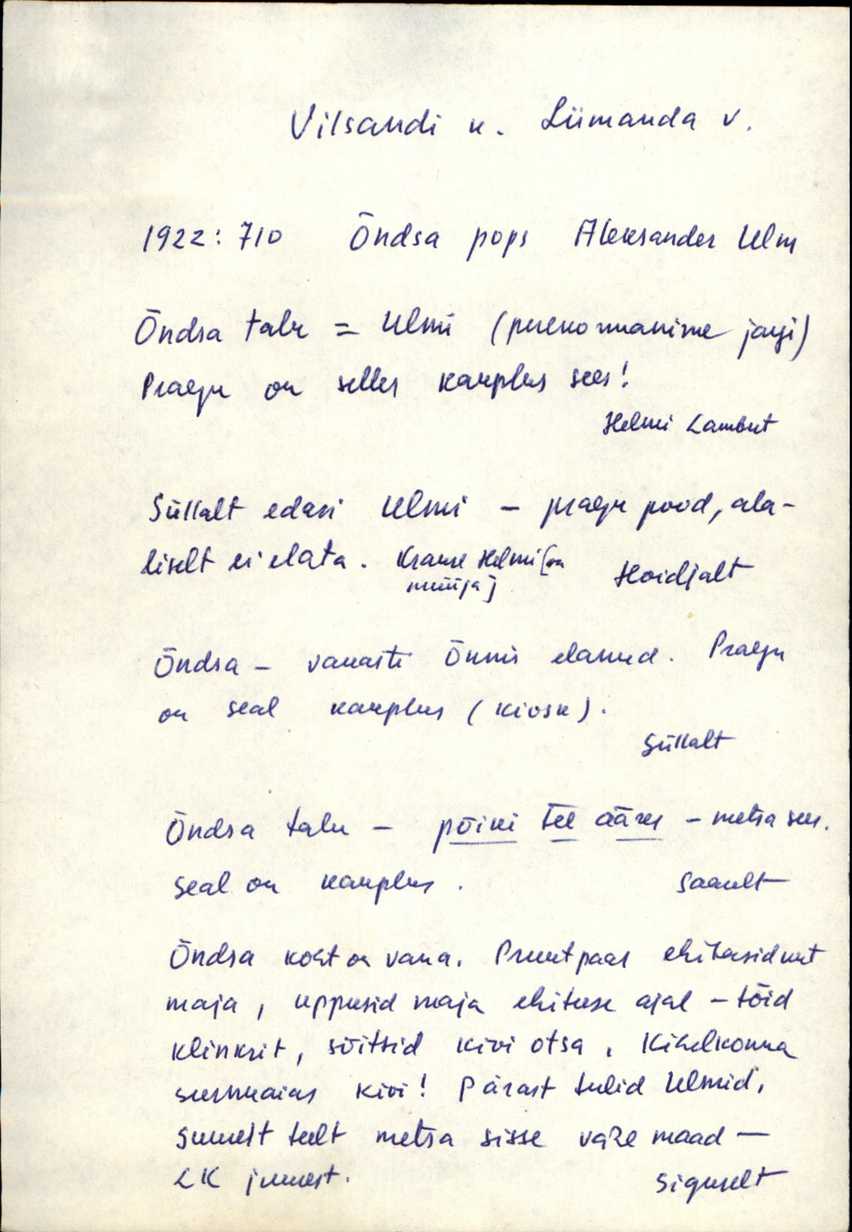 Vilsandi k. Lümanda v.
1922: 710 Õndsa pops Aleksander Ulm
Õndsa talu = Ulmi (perekonnanime järgi)
Praegu on selles kauplus sees!
Helmi Lambut
Süllalt edasi Ulmi – praegu pood, ala-
liselt ei elata. Krause Helmi [on
müüja] Hoidjalt
Õndsa – vanasti Õnnis elanud. Praegu
on seal kauplus (kiosk).
Süllalt
Õndsa talu – põiki tee ääres – metsa sees.
Seal on kauplus. Saarelt
Õndsa koht on vana. Pruutpaar ehitasid uut
maja, uppusid maja ehituse ajal – tõid
klinkrit, sõitsid kivi otsa. Kihelkonna
surnuaias kivi! Pärast tulid Ulmid.
Suurelt teelt metsa sisse väke maad –
LK juurest. Siguselt